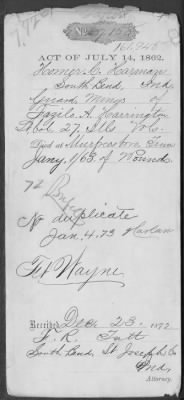 161,945
ACT OF JULY 14, 1862.
Homer C. Harmon
South Bend, Ind.
Guard. Minrs of
A. Harrington
27, Ills Vols.
Died at Murfreesboro Tenn
Jany. 1/63 of Wound.
No duplicate
Jan. 4. 73 Harlan
Ft Wayne
Received Dec. 23. 1872
F. R. Tutt
South Bend, St Joseph Co
Ind.
Attorney.